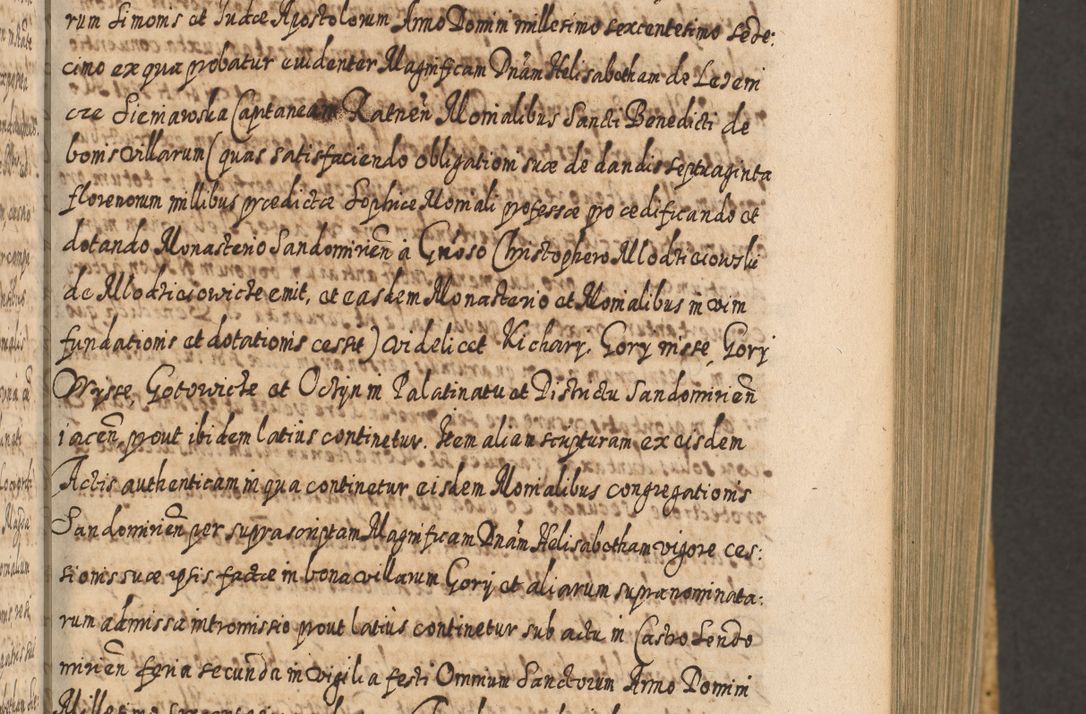 rum Simonis et Judæ Apostolorum Anno Domini millesimo sexcentesimo sede:
cimo ex qua probatur euidenter Magnificam Dnam Helisabetham de Leżeni
cze Sieniawska Capitaneam Ratneñ Monialibus Sancti Benedicti de
bonis villarum (quas satisfaciendo obligationi suæ de dandis septuaginta
florenorum millibus prædictæ Sophiæ Moniali professæ pro ædificando et
dotando Monasterio Sandomirieñ à Gnoso Christophero Mlodzieiowski
de Mlodzieiowicze emit, et easdem Monasterio et Monialibus in vim
fundationis et dotationis cessit) videlicet Kichary, Gory nisse, Gory
Wysse, Gotowicze et Ocżyn in Palatinatu et Districtu Sandomirieñ
iaceñ, prout ibidem latius continetur. Item aliam scripturam ex eisdem
Actis authenticam in qua continetur eisdem Monialibus congregationis
Sandomirieñ per suprascriptam Magnificam Dnam Helisabetham vigore ces:
sionis suæ ipsis factæ in bona villarum Gory et aliarum supranominata:
rum admissa intromissio prout latius continetur sub actu in Castro Sendo
mirieñ feria secunda in vigilia festi Omnium Sanctorum Anno Domini
Millesimo